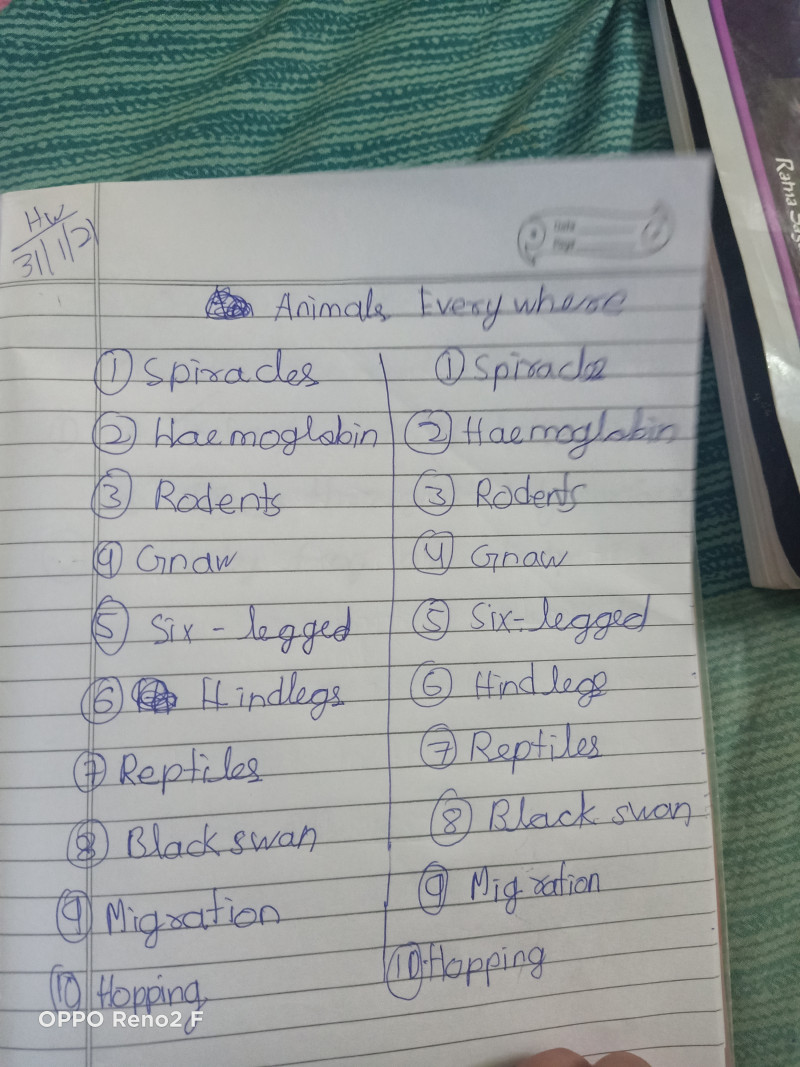 HW
31/1/21
Animals Everywhere
① Spiracles
② Haemoglobin
③ Rodents
④ Gnaw
⑤ Six-legged
⑥ Hindlegs
⑦ Reptiles
⑧ Black swan
⑨ Migration
⑩ Hopping
① Spiracle
② Haemoglobin
③ Rodents
④ Gnaw
⑤ Six-legged
⑥ Hind legs
⑦ Reptiles
⑧ Black swan
⑨ Migration
⑩ Hopping
Ratna Sag
OPPO Reno2 F